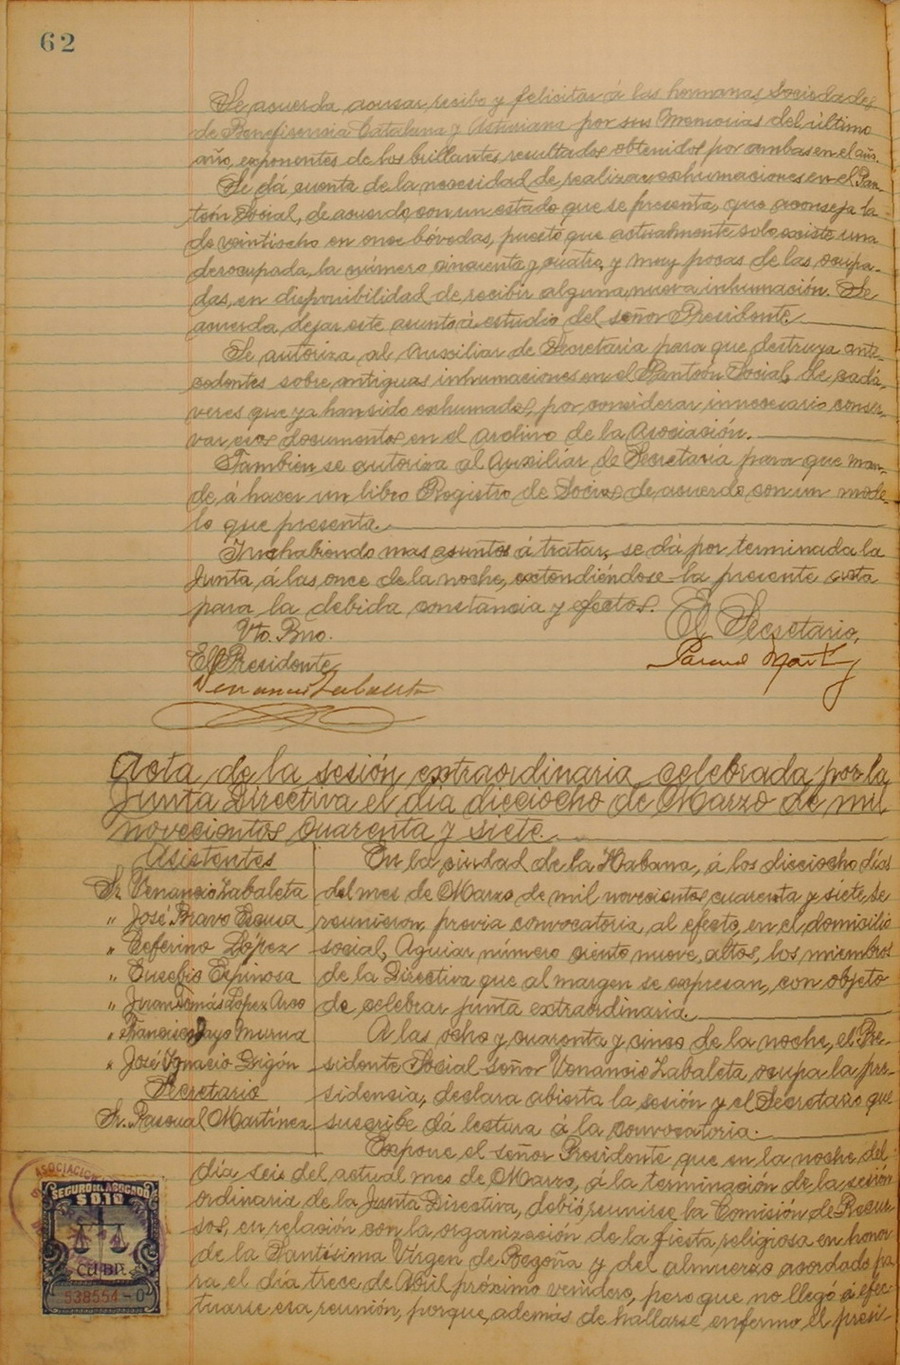 62
Se acuerda acusar recibo y felicitar á las hermanas Sociedades
de Beneficencia Catalana y Asturiana por sus Memorias del último
año, exponentes de los brillantes resultados obtenidos por ambas en el año.
Se dá cuenta de la necesidad de realizar exhumaciones en el Pan-
teón Social, de acuerdo con un estado que se presenta, que aconseja la
de veintiocho en once bóvedas, puesto que actualmente solo existe una
desocupada, la número cincuenta y cuatro, y muy pocas de las ocupa-
das, en disponibilidad de recibir alguna nueva inhumación. Se
acuerda, dejar este asunto á estudio del señor Presidente.
Se autoriza al Auxiliar de Secretaria para que destruya ante-
cedentes sobre antiguas inhumaciones en el Panteón Social, de cadá-
veres que ya han sido exhumados, por considerar innecesario conser-
var esos documentos en el Archivo de la Asociación.
Tambien se autoriza al Auxiliar de Secretaría para que man-
de á hacer un libro Registro de Socios de acuerdo con un mode-
lo que presenta.
Y no habiendo mas asuntos á tratar, se dá por terminada la
Junta á las once de la noche, extendiéndose la presente acta
para la debida constancia y efectos.
Vto. Bno.
El Secretario,
El Presidente
Pascual Martínez
Venancio Zabaleta
Acta de la sesión extraordinaria celebrada por la
Junta Directiva el día dieciocho de Marzo de mil
novecientos cuarenta y siete.
Asistentes
Sr. Venancio Zabaleta
" José Bravo
" Ceferino López
" Eusebio Espinosa
" Juan Tomás López
" Francisco Jayo Murua
" José Ignacio Grigón
Secretario
Sr. Pascual Martínez
En la ciudad de la Habana, á los dieciocho días
del mes de Marzo de mil novecientos cuarenta y siete, se
reunieron, previa convocatoria, al efecto, en el domicilio
social, Aguiar número ciento nueve, altos, los miembros
de la Directiva que al margen se expresan, con objeto
de celebrar junta extraordinaria.
A las ocho y cuarenta y cinco de la noche, el Pre-
sidente Social señor Venancio Zabaleta ocupa la pre-
sidencia, declara abierta la sesión y el Secretario que
suscribe dá lectura á la convocatoria.
Expone el señor Presidente que en la noche del
día seis del actual mes de Marzo, á la terminación de la sesión
ordinaria de la Junta Directiva, debió reunirse la Comisión de Recur-
sos, en relación con la organización de la fiesta religiosa en honor
de la Santísima Virgen de Begoña y del almuerzo acordado pa-
ra el día trece de Abril próximo venidero, pero que no llegó á efec-
tuarse esa reunión, porque, además de hallarse enfermo el presi-
SEGURO DEL ABOGADO
CUBA
538554-C